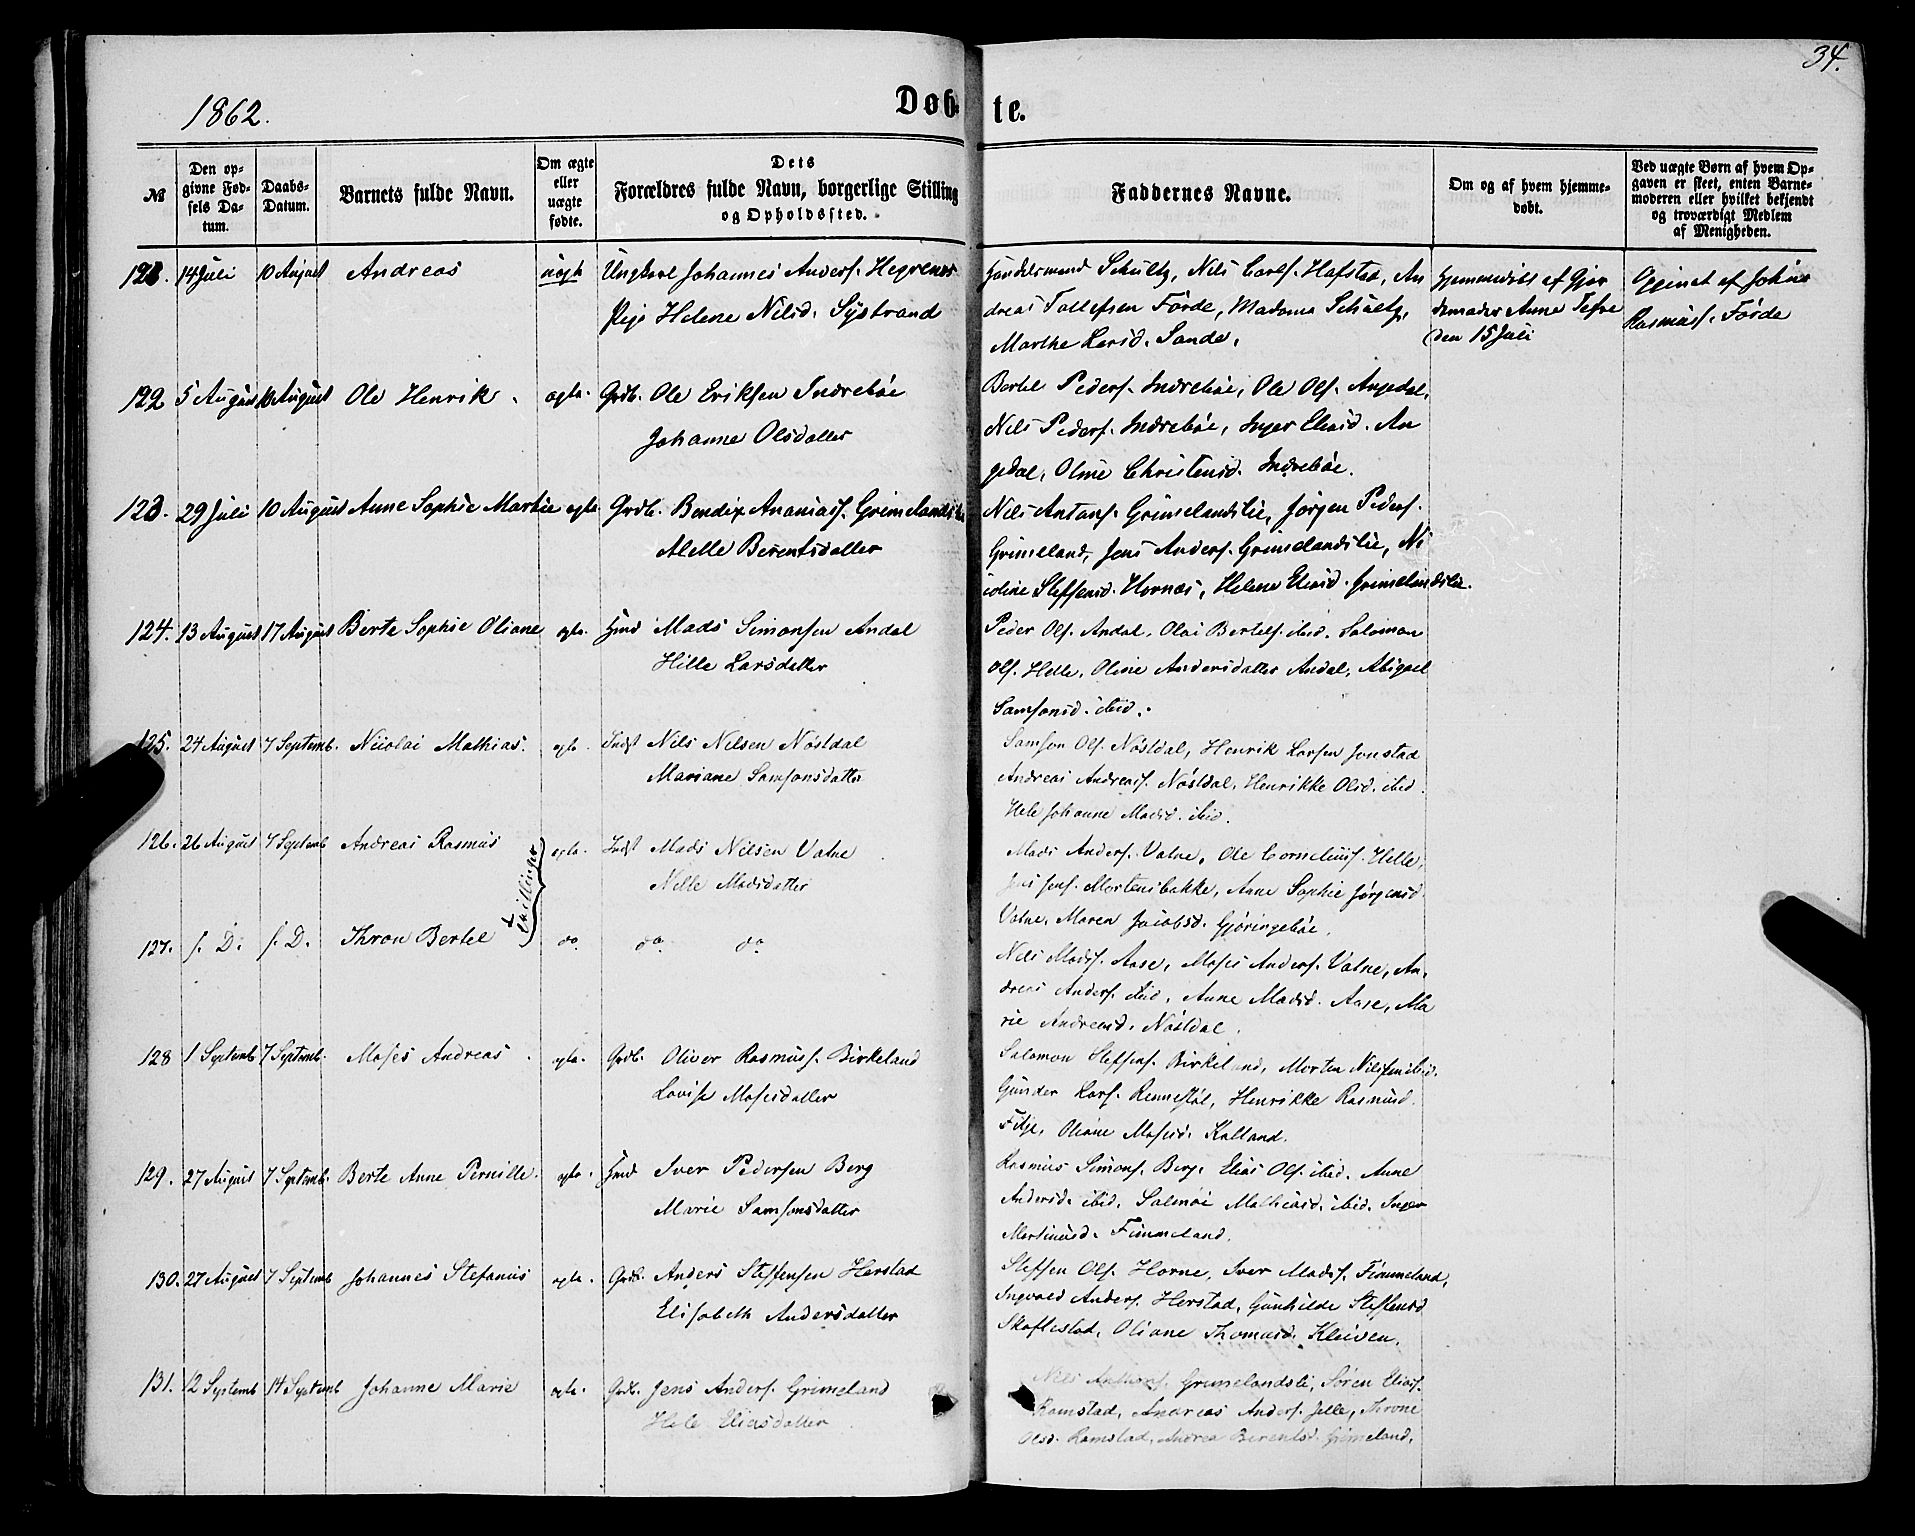 34.
1862.
Døb-
te.
№
Den op-
givne Fød-
sels Da-
tum.
Daabs-
Datum.
Barnets fulde Navn.
Om ægte
eller
uægte
fødte.
Dets
Forældres fulde Navn, borgerlige Stilling
og Opholdssted.
Faddernes Navne.
Om og af hvem hjemme-
døbt.
Ved uægte Børn af hvem Op-
gaven er skeet, enten Barne-
moderen eller hvilket bekjendt
og troværdigt Medlem
af Menigheden.
121. 14 Juli 10 August Andreas uægt Ungkarl Johannes Anders. Hegrenes
Pige Helene Nilsd. Systrand
Handelsmand Schultz, Nils Carls. Hafstad, An
dreas Tollefsen Förde, Madame Schultz,
Marthe Larsd. Sande.
Hjemmedöbt af Gjor
demoder Anne Tefre
den 15 Juli
Opgivet af Johan
Rasmus. Förde
122 5 August 10 August Ole Henrik ægte. Grdb. Ole Eriksen Indreböe
Johanne Olsdatter
Bertel Peders. Indreböe, Ole Ols. Angedal,
Nils Peders. Indreböe, Inger Eliasd. An
gedal, Oline Christensd. Indreböe.
123. 29 Juli 10 August Anne Sophie Martie ægte Grdb. Bendix Ananiass. Grimelandslie
Alette Berentsdatter
Nils Antons. Grimelandslie, Jörgen Peders.
Grimeland, Jens Anders. Grimelandslie, Ni
coline Steffensd. Hornæs, Helene Eliasd. Grimelandslie.
124. 13 August 17 August Berte Sophie Oliane ægte. Hmd Mads Simonsen Andal
Hille Larsdatter
Peder Ols. Andal, Olai Bertels. ibid. Salomon
Ols. Helle, Oline Andersdatter Andal, Abigael
Samsonsd. ibid.
125. 24 August 7 Septemb. Nicolai Mathias. ægte. Indst Nils Nilsen Nöstdal
Mariane Samsonsdatter
Samson Ols. Nöstdal, Henrik Larsen Jonstad
Andreas Andreass. Nöstdal, Henrikke Olsd. ibid.
Hele Johanne Madsd. ibid.
126. 26 August 7 Septemb Andreas Rasmus ægte. Indst Mads Nilsen Vatne
Nille Madsdatter
Mads Anders. Vatne, Ole Corneliuss. Helle,
Jens Jens. Mortensbakke, Anne Sophie Jörgensd.
Vatne, Maren Jacobsd. Gjöringeböe.
Tvillinger
127. s. D. s. D. Thron Bertel do do do
Nils Madss. Aase, Moses Anders. Vatne, An
dreas Anders. ibid, Anne Madsd. Aase, Ma
rie Andreasd. Nöstdal.
128 1 Septemb 7 Septemb. Moses Andreas ægte. Grdb. Oliver Rasmuss. Birkeland
Lovise Mosesdatter
Salomon Steffens. Birkeland, Morten Nilssen ibid.
Gunder Lars. Rennestöl, Henrikke Rasmusd.
Fitje, Oliane Mosesd. Kalland.
129. 27 August 7 Septemb. Berte Anne Pernille. ægte. Hmd Iver Pedersen Berg
Marie Samsonsdatter
Rasmus Simons. Berg, Elias Ols. ibid. Anne
Andersd. ibid. Salmöi Mathiasd. ibid. Inger
Martinusd. Fimmeland.
130. 27 August 7 Septemb Johannes Stefanus ægte. Grdb. Anders Steffensen Herstad
Elisabeth Andersdatter
Steffen Ols. Horne, Iver Madss. Fimmeland,
Ingvald Anders. Herstad, Gunhilde Steffensd
Skaflestad, Oliane Thomasd. Kleiven.
131. 12 Septemb 14 Septemb Johanne Marie ægte. Grdb. Jens Anders. Grimeland
Hele Eliasdatter
Nils Antons. Grimelandsli, Sören Eliass.
Ramstad, Andreas Anders. Helle, Throne
Olsd. Ramstad, Andrea Berentsd. Grimeland,